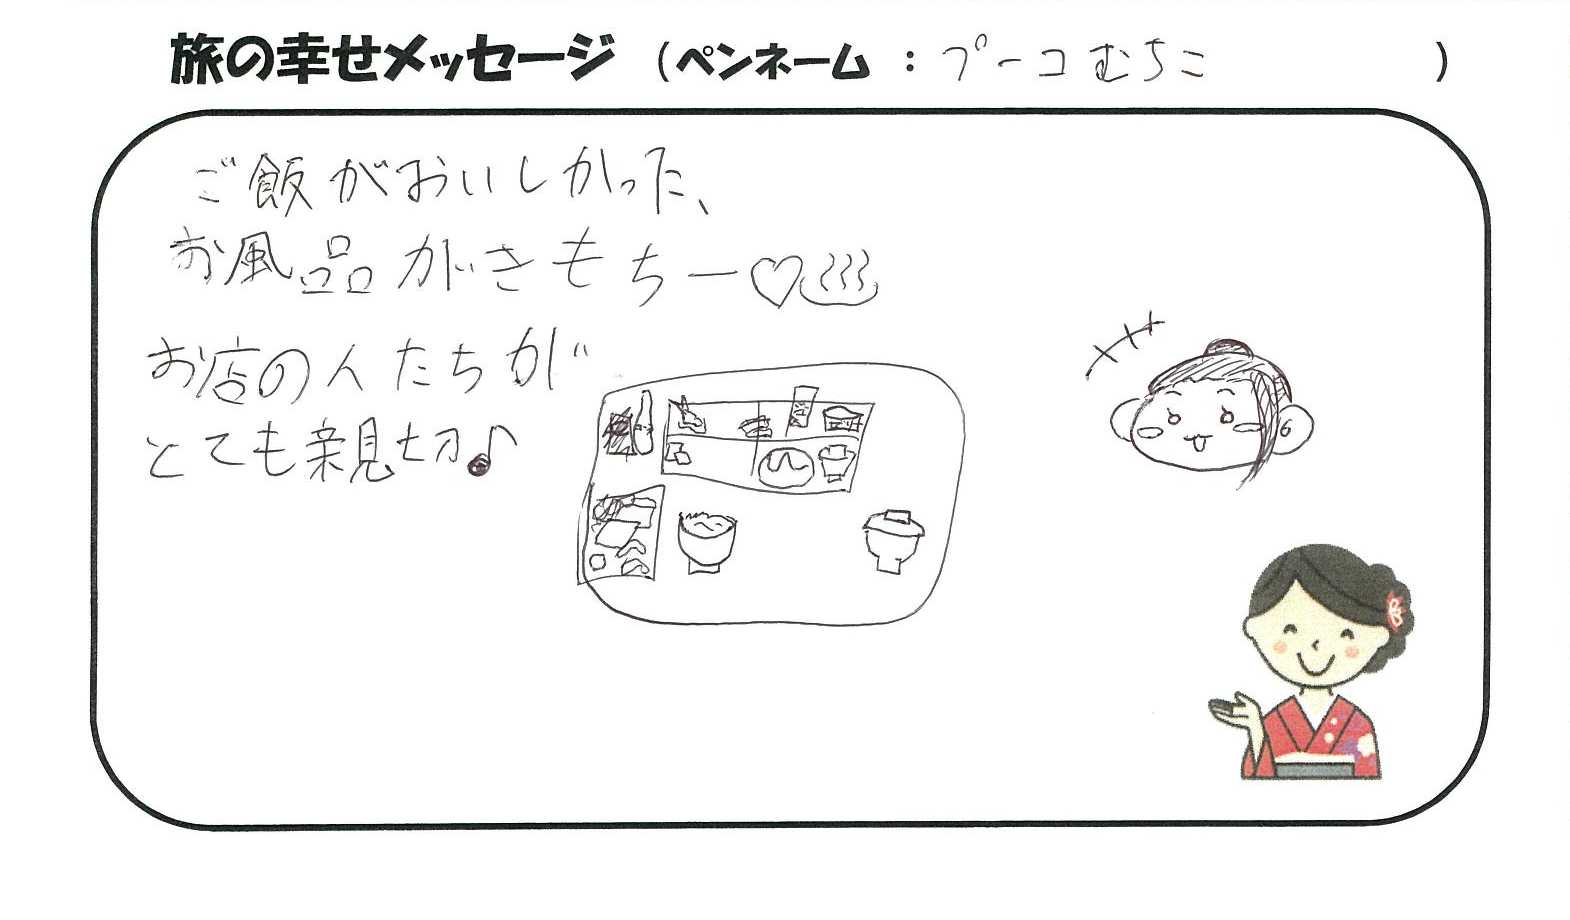 旅の幸せメッセージ (ペンネーム : プーコむちこ )
ご飯がおいしかった、
お風品がきもちー♡♨
お店の人たちが
とても親切♪